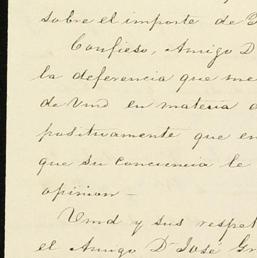 sobre el importe de
Confieso, Amigo D
la deferencia que me
de Vmd en materia
positivamente que en
que su conciencia le
opinion –
Vmd y sus respet
el Amigo Dn José